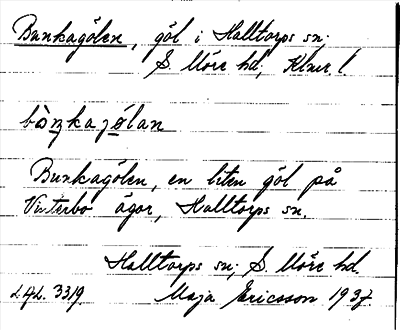 Bunkagölen, göl i Halltorps sn.
S. Möre hd, Klmr l
bòŋkajølan
Bunkagölen, en liten göl på
Vinterbo ägor, Halltorps sn.
Halltorps sn; S. Möre hd.
LAL. 3319. Maja Ericsson 1937.